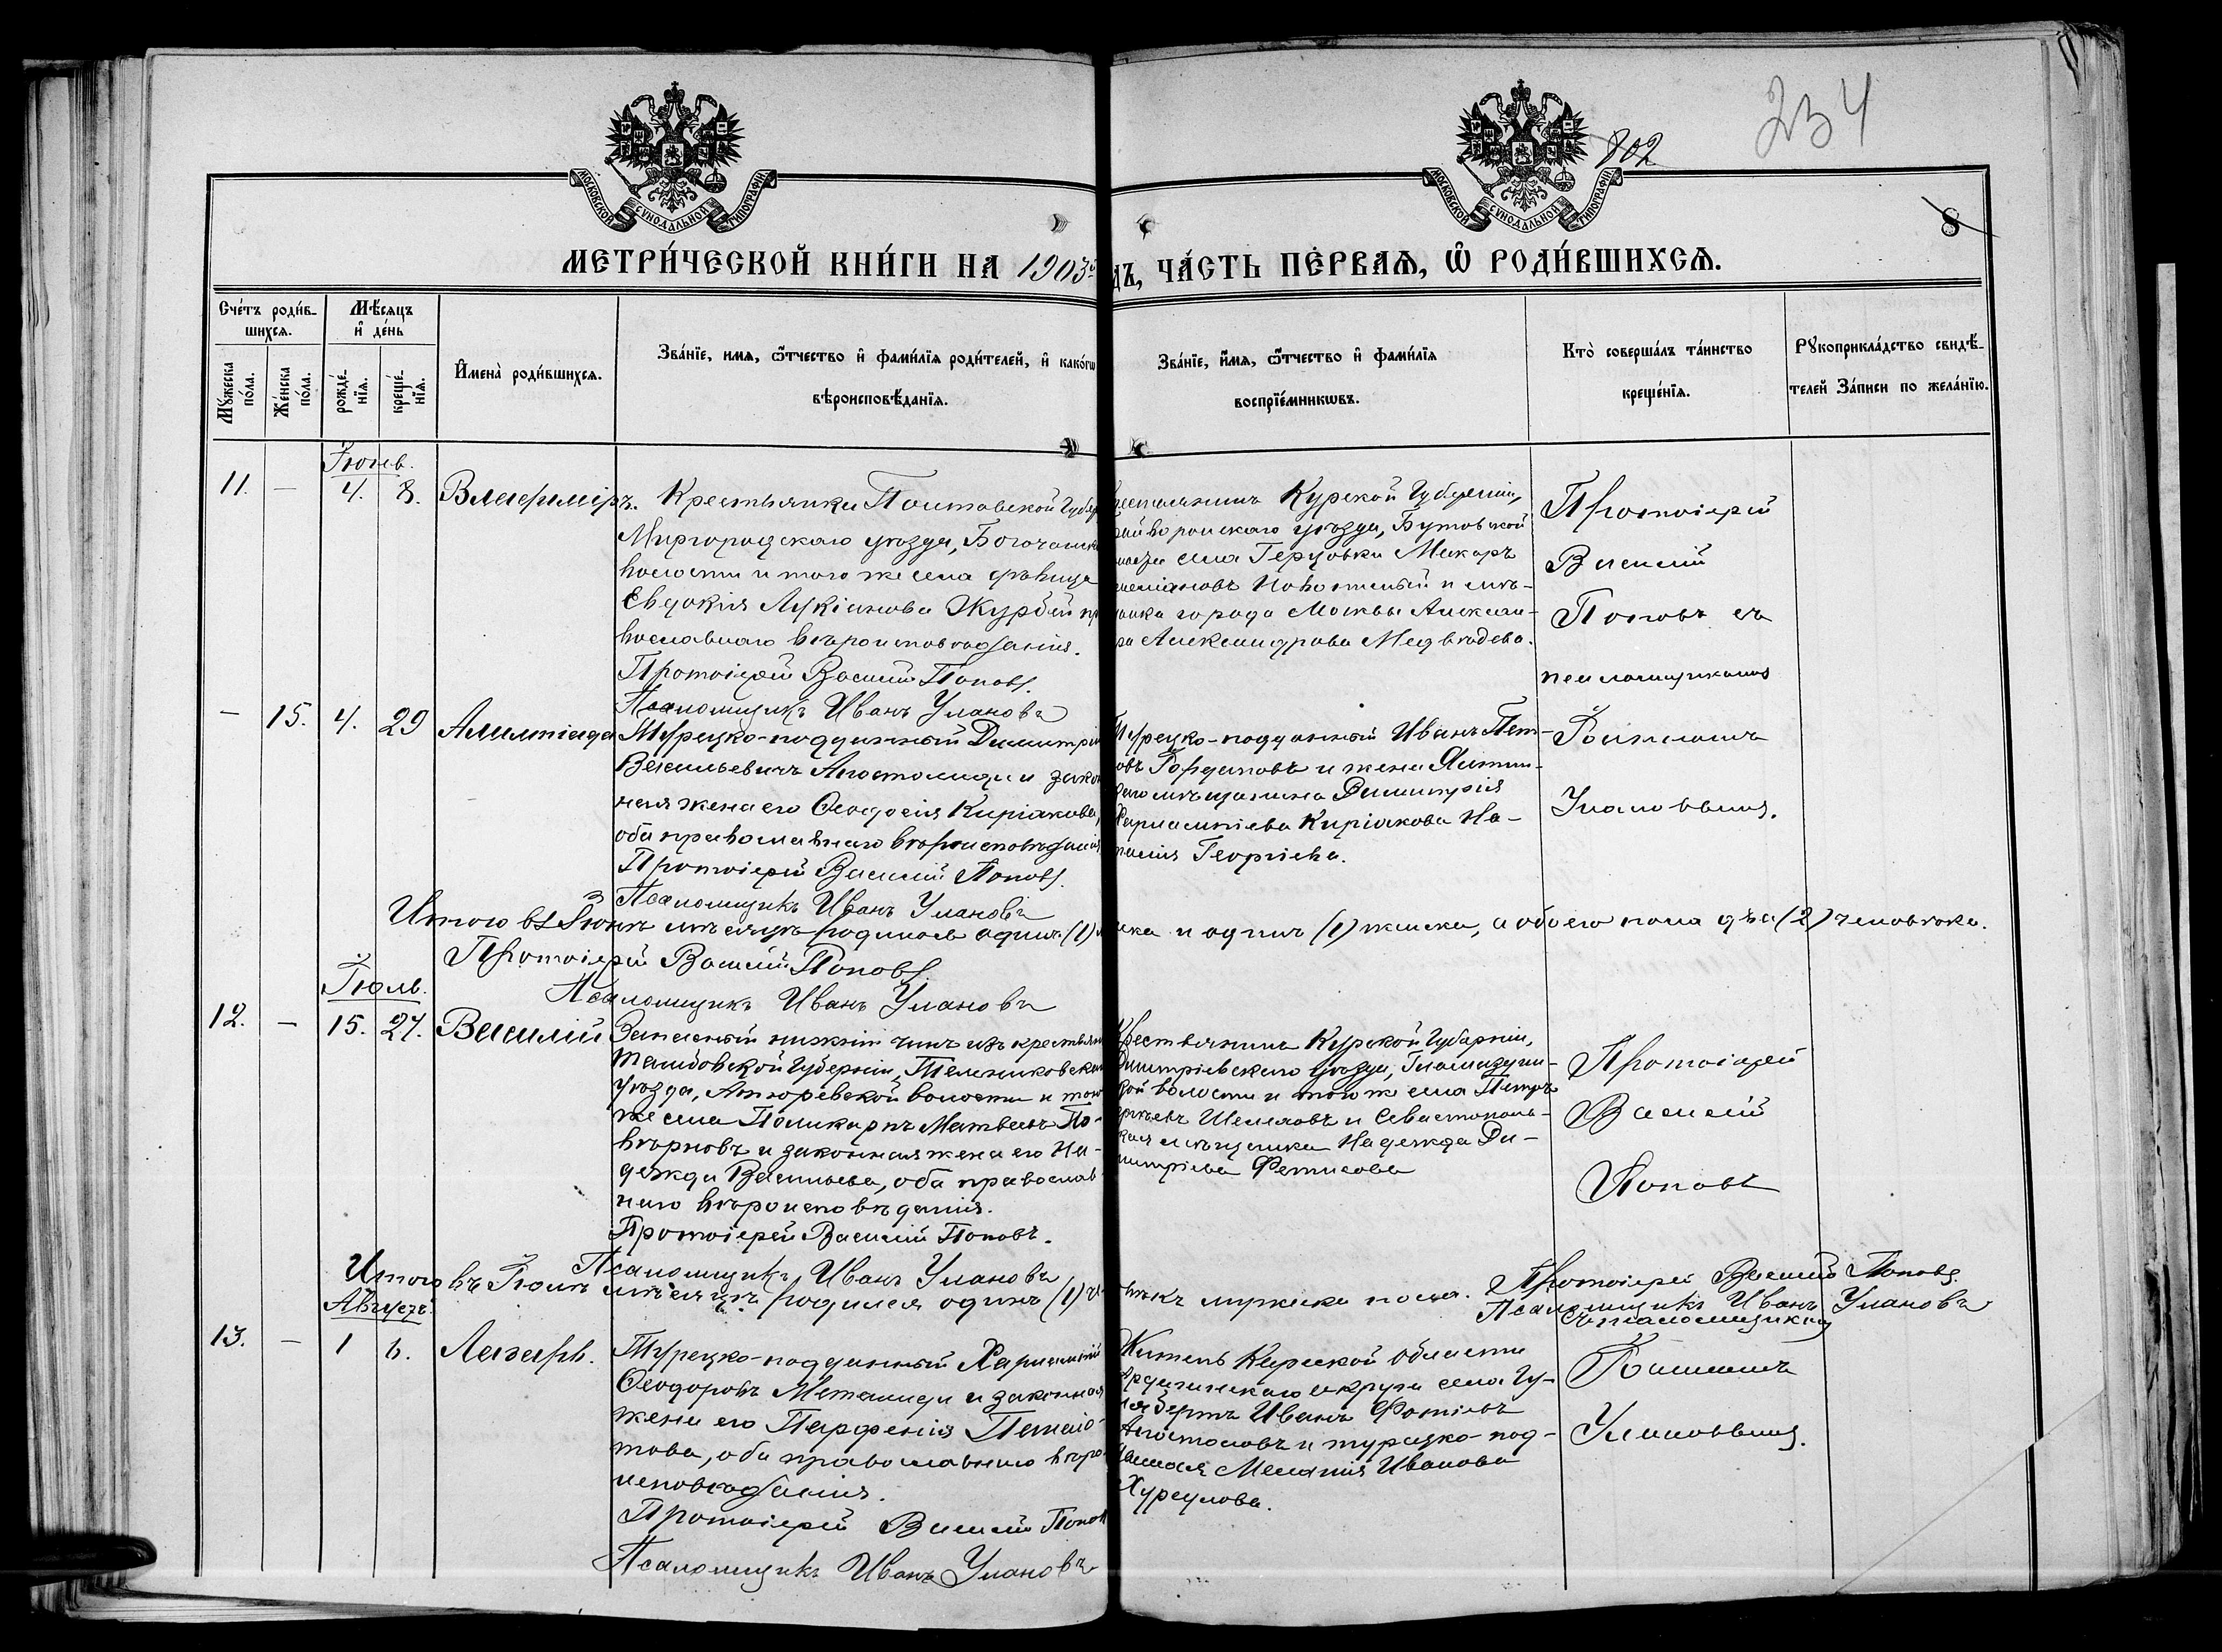 234
802
8
МОСКОВСКОЙ СѴНОДАЛЬНОЙ ТИПОГРАФІИ
МОСКОВСКОЙ СѴНОДАЛЬНОЙ ТИПОГРАФІИ
МЕТРИ́ЧЕСКОЙ КНИ́ГИ НА 1903й
дъ, ЧА́СТЬ ПЕ́РВАѦ, Ѡ҆ РОДИ́ВШИХСѦ.
Сче́тъ роди́в-
шихсѧ.
Мꙋжеска по́ла.
Же́нска по́ла.
Мѣ́сѧцъ
и҆ де́нь
рожде́-
нїѧ.
креще́-
нїѧ.
И҆мена̀ роди́вшихсѧ.
Зва́нїе, имѧ, ѻ҆́тчество и҆ фами́лїѧ роди́телей, и҆ како́гѡ
вѣроисповѣ́данїѧ.
Зва́нїе, и҆́мѧ, ѻ҆́тчество и҆ фами́лїѧ
воспрїе́мникѡвъ.
Кто̀ соверша́лъ та́инство
креще́нїѧ.
Рꙋкоприкла́дство свидѣ́-
телей За́писи по жела́нїю.
Іюнь.
11. — 4. 8. Владиміръ.
Крестьянки Полтавской Губер
Миргородскаго уѣзда,
волости и того же села дѣвица
Евдокія Лукіанова Журбій пр
вославнаго вѣроисповѣданія.
Протоіерей Василій Поповъ.
Псаломщикъ Иванъ Улановъ
Крестьянинъ Курской Губерніи,
райворонскаго уѣзда, Бутовской
волости села Герцовки Макаръ
и мѣ-
щанка города Москвы Алексан-
дра Александрова Медвѣдева.
Протоіерей
Василій
Поповъ съ
псаломщикомъ
— 15. 4. 29 Алимпіада
Турецко-подданный Димитрій
Васильевичъ Апостолиди и закон
ная жена его Ѳеодосія Киріакова,
оба православнаго вѣроисповѣданія
Протоіерей Василій Поповъ.
Псаломщикъ Иванъ Улановъ
Турецко-подданный Иванъ Пет-
овъ Іордановъ и жена Ялтин-
скаго мѣщанина Димитрія
Харлампіева Киріакова На-
талія Георгіева.
Иваномъ
Улановымъ.
Итого въ Іюнѣ мѣсяцѣ родилось одинъ (1) м
ска и одинъ (1) женска, а обоего пола два (2) человѣка.
Протоіерей Василій Поповъ.
Псаломщикъ Иванъ Улановъ
Іюль.
12. — 15. 27. Василій
Запасный нижній чинъ изъ крестьян
Тамбовской Губерніи, Темниковскаго
уѣзда, Атюревской волости и того
же села Поликарпъ Матвѣевъ По-
вѣрновъ и законная жена его На-
дежда Васильева, оба православ-
наго вѣроисповѣданія.
Протоіерей Василій Поповъ.
Псаломщикъ Иванъ Улановъ
Крестьянинъ Курской Губерніи,
Дмитріевскаго уѣзда,
кой волости и того ж села Петръ
Шемяковъ и Севастополь-
ская мѣщанка Надежда Ди-
митріева Фетисова
Протоіерей
Василій
Поповъ
Итого въ Іюлѣ мѣсяцѣ родился одинъ (1) че-
вѣкъ мужска пола.
Протоіерей Василій Поповъ.
Псаломщикъ Иванъ Улановъ
Августъ.
съ псаломщикомъ
13. — 1 6. Лазарь.
Турецко-подданный Харлампій
Ѳеодоровъ Металиди и законная
жена его Парфенія Панаіо-
това, оба православнаго вѣро-
исповѣданія.
Протоіерей Василій Попов
Псаломщикъ Иванъ Улановъ
Житель Карсской области
Ардаганскаго округа села Гу-
лябертъ Иванъ Фотіевъ
Апостоловъ и турецко-под-
данная Меланія Иванова
Хурсулова.
Иваномъ
Улановымъ.